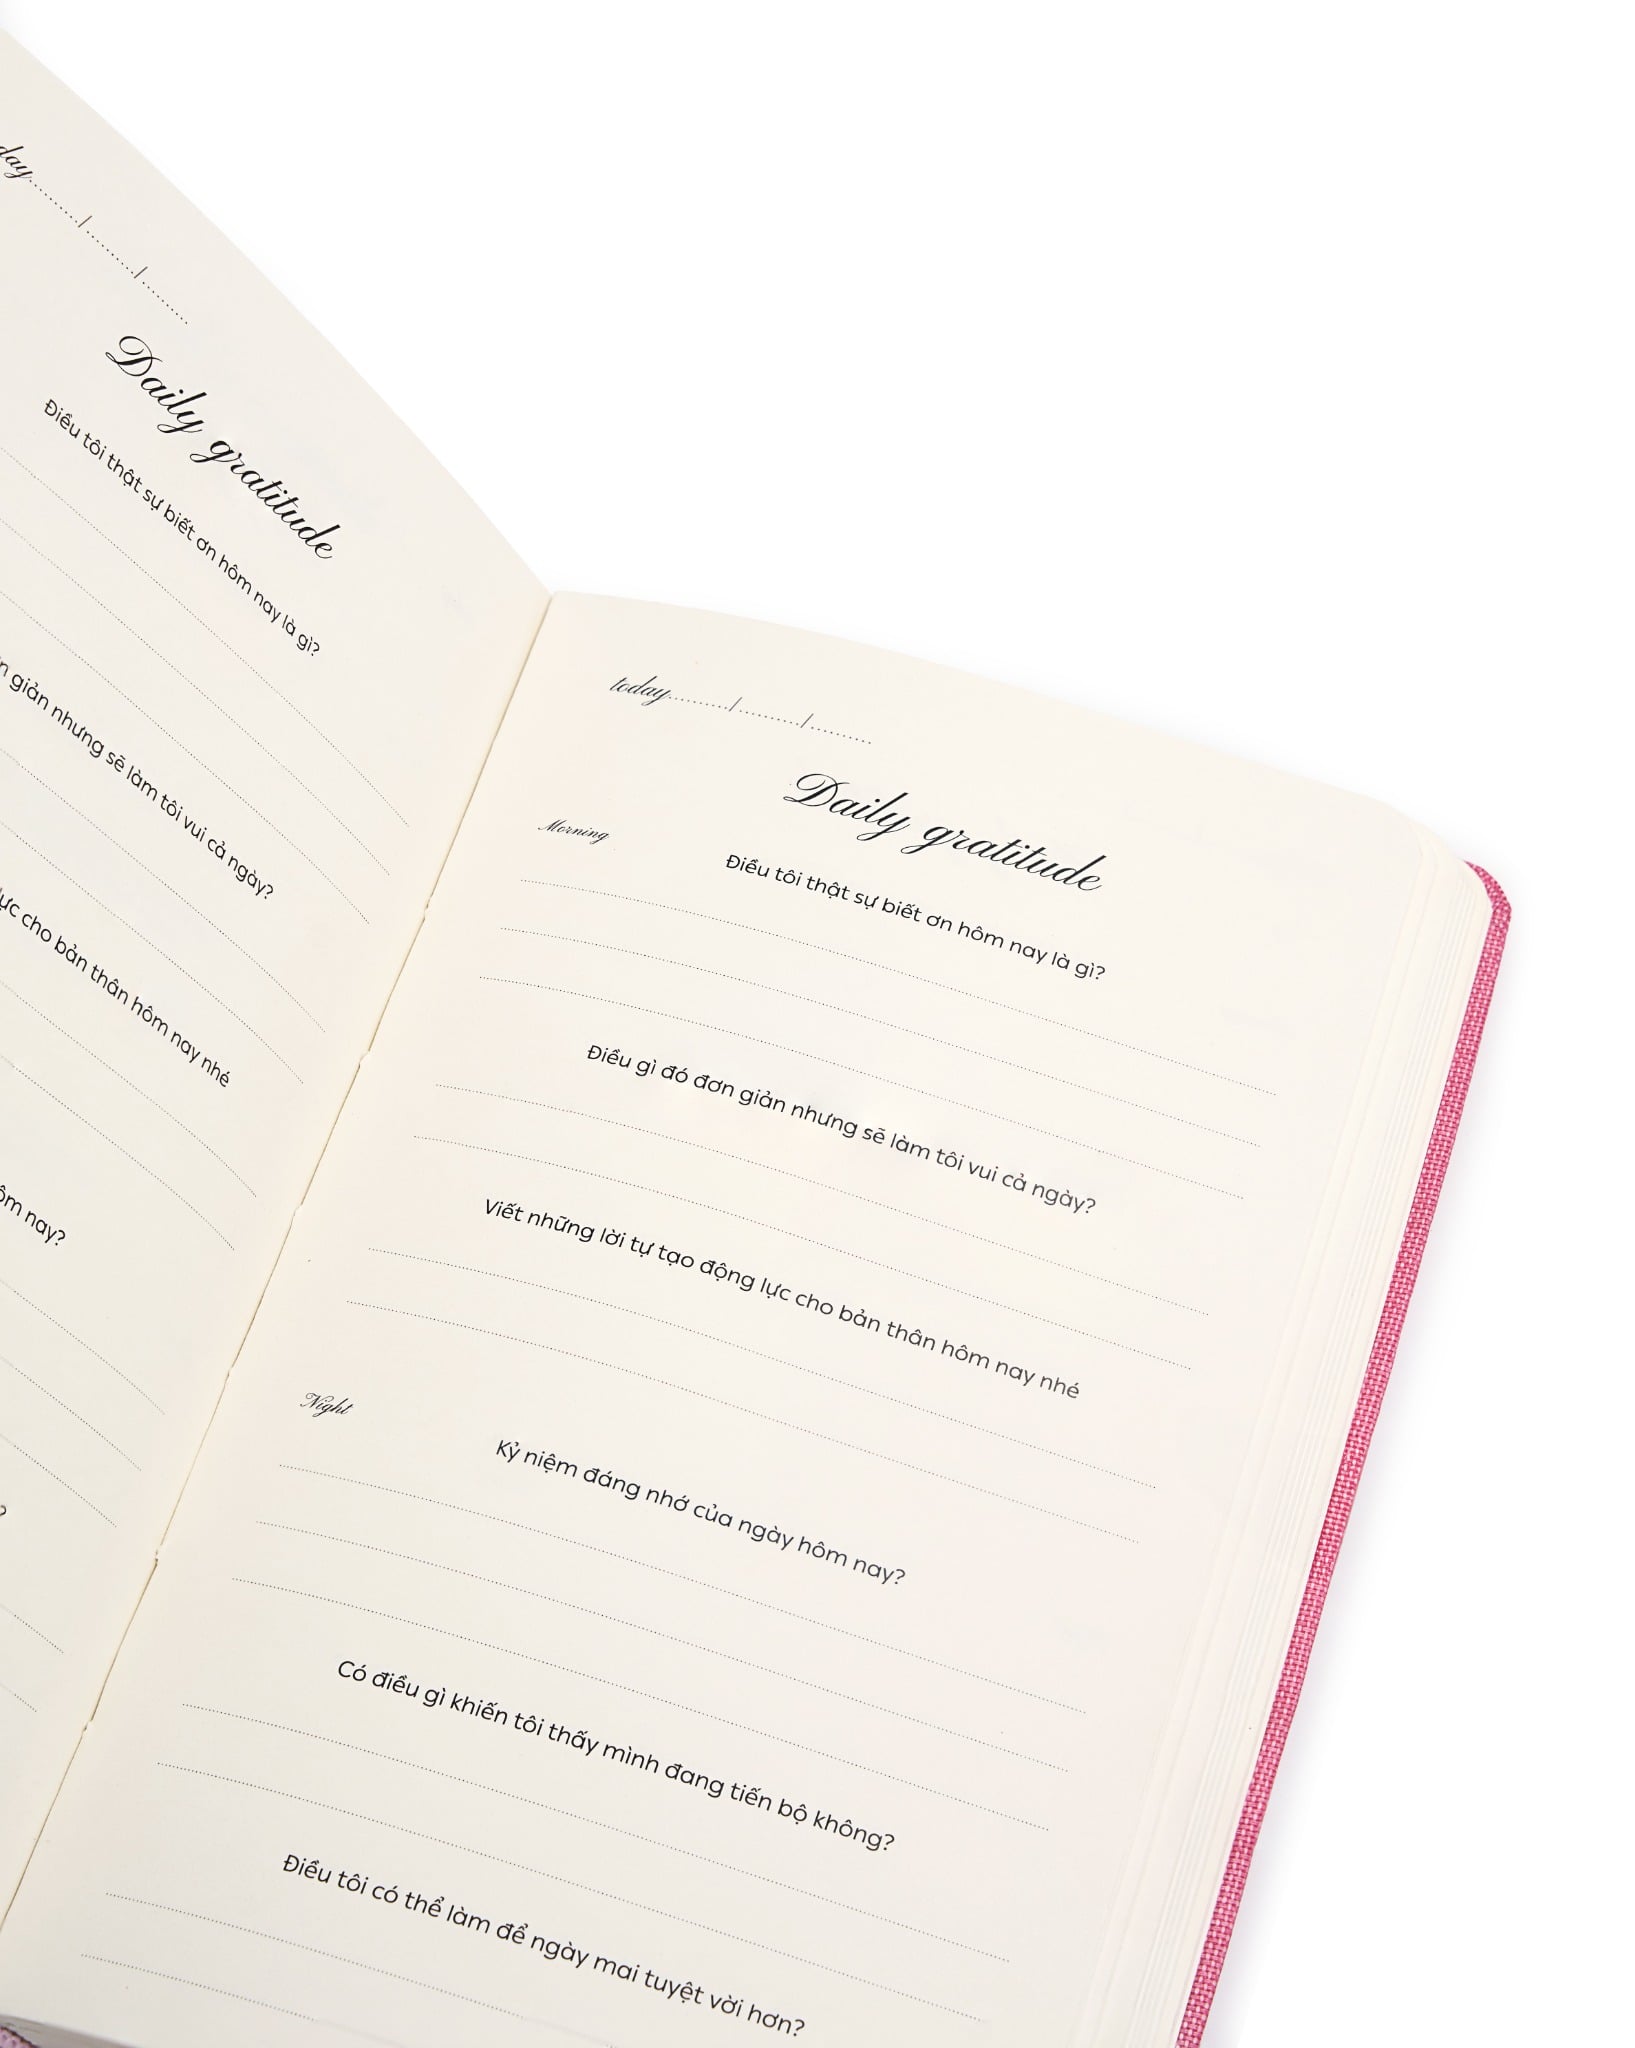 today........./........./.........
Daily gratitude
Điều tôi thật sự biết ơn hôm nay là gì?
giản nhưng sẽ làm tôi vui cả ngày?
cho bản thân hôm nay nhé
nay?
?
today........./........./.........
Daily gratitude
Morning
Điều tôi thật sự biết ơn hôm nay là gì?
Điều gì đó đơn giản nhưng sẽ làm tôi vui cả ngày?
Viết những lời tự tạo động lực cho bản thân hôm nay nhé
Night
Kỷ niệm đáng nhớ của ngày hôm nay?
Có điều gì khiến tôi thấy mình đang tiến bộ không?
Điều tôi có thể làm để ngày mai tuyệt vời hơn?